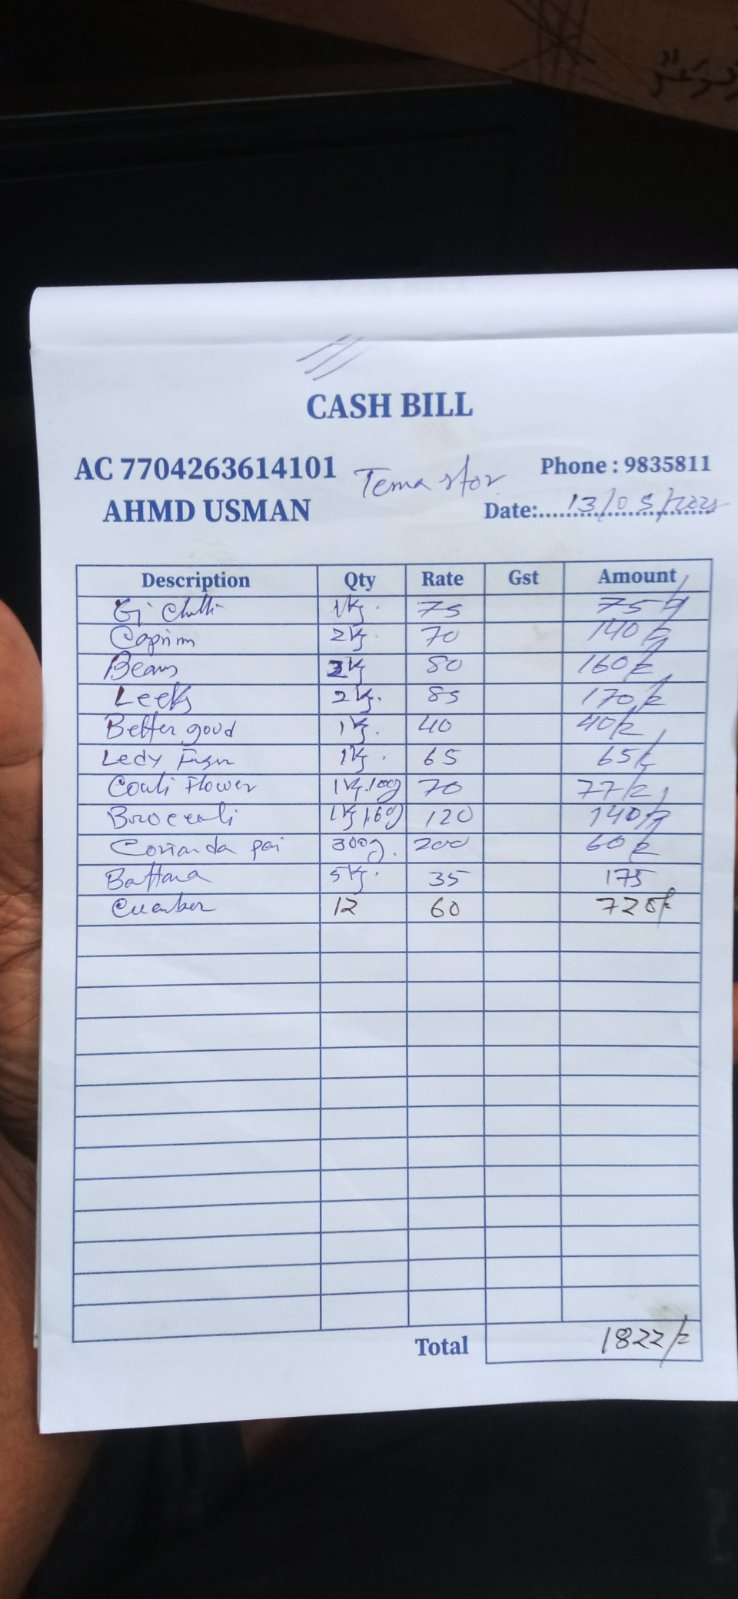 CASH BILL
AC 7704263614101 Tema stor Phone : 9835811
AHMD USMAN Date: 13/05/202
Description Qty Rate Gst Amount
Gi Chilli 1kg. 75 75/-
2kg. 70 140/-
Beans 2kg 80 160/-
Leeks 2kg. 85 170/-
Better good 1kg. 40 40/-
Ledy 1kg. 65 65/-
Couli Flower 1kg.100g 70 77/-
Broccoli 1kg 160g 120 140/-
Corianda 300g. 200 60/-
Battana 5kg. 35 175
12 60 720/-
Total 1822/-